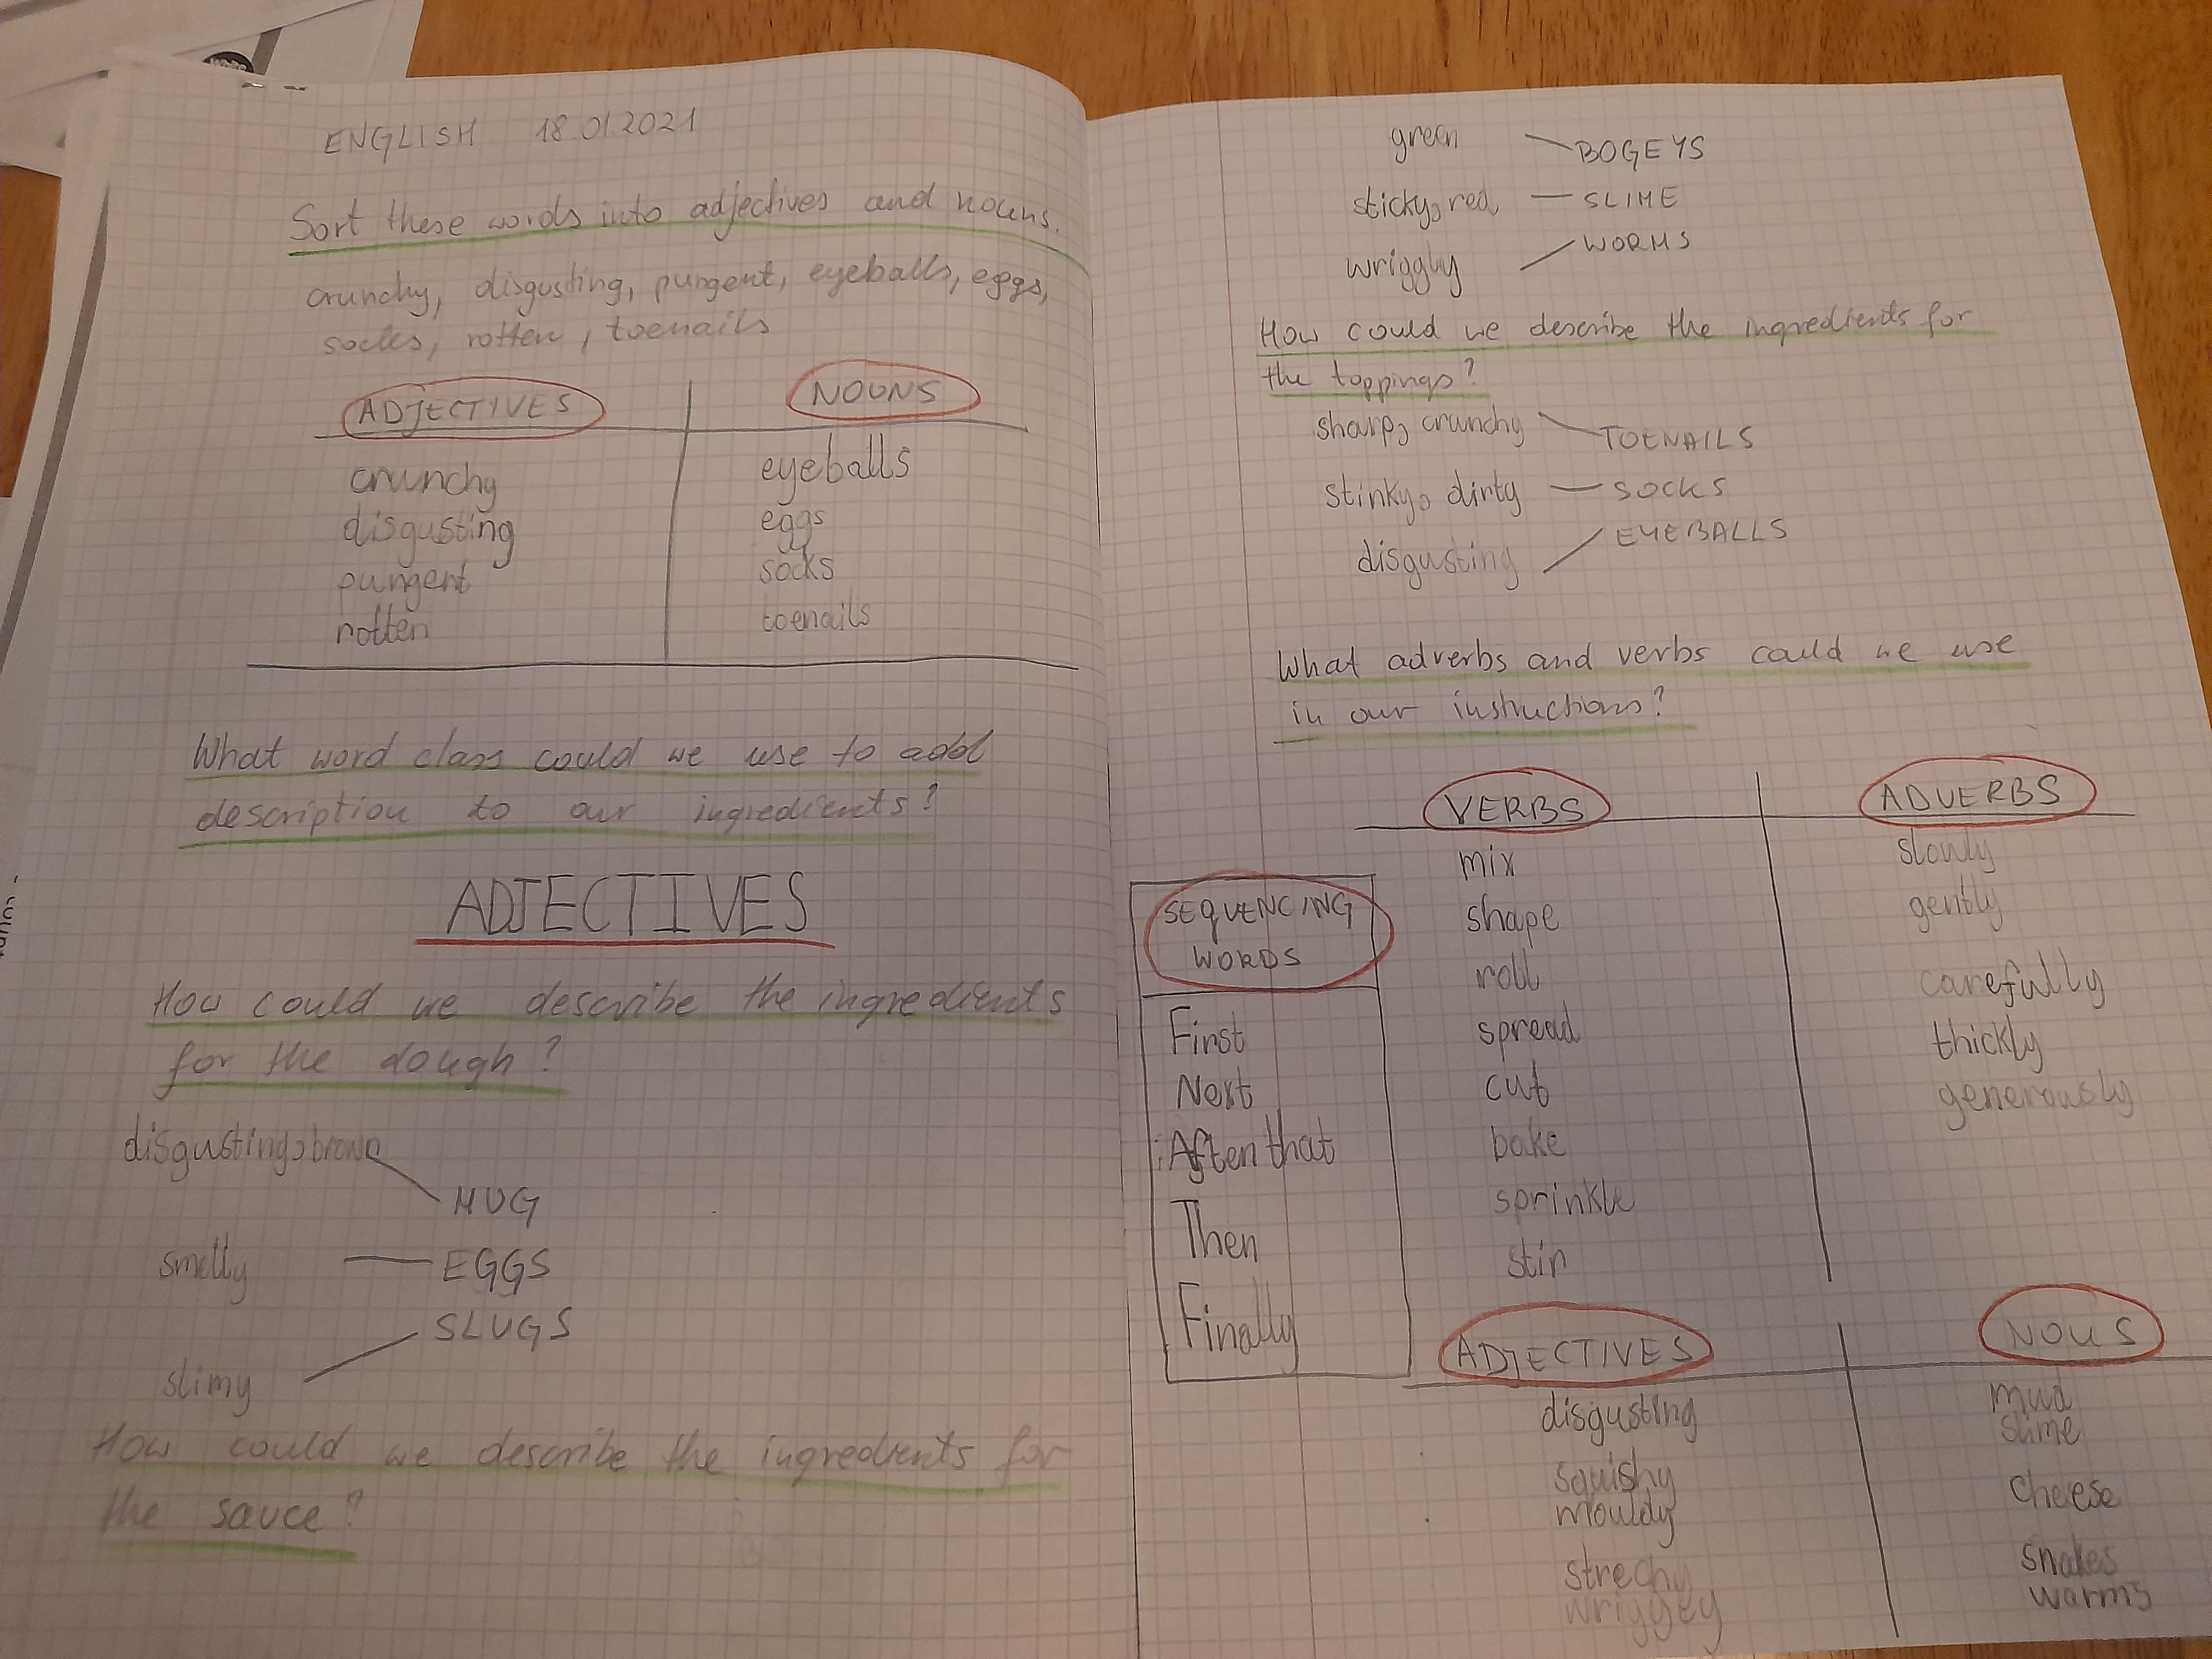 ENGLISH 18.01.2021
Sort these words into adjectives and nouns.
crunchy, disgusting, pungent, eyeballs, eggs,
socks, rotten, toenails
ADJECTIVES NOUNS
crunchy eyeballs
disgusting eggs
pungent socks
rotten toenails
What word class could we use to add
description to our ingredients?
ADJECTIVES
How could we describe the ingredients
for the dough?
disgusting, brown
MUG
smelly EGGS
SLUGS
slimy
How could we describe the ingredients for
the sauce?
green BOGEYS
sticky, red SLIME
wriggly WORMS
How could we describe the ingredients for
the toppings?
sharp, crunchy TOENAILS
stinky, dirty SOCKS
disgusting EYEBALLS
What adverbs and verbs could we use
in our instructions?
VERBS ADVERBS
mix slowly
shape gently
roll carefully
spread thickly
cut generously
bake
sprinkle
stir
SEQUENCING
WORDS
First
Next
After that
Then
Finally
ADJECTIVES NOUS
disgusting mud
slime
squishy cheese
mouldy
strechy snakes
wriggey warms